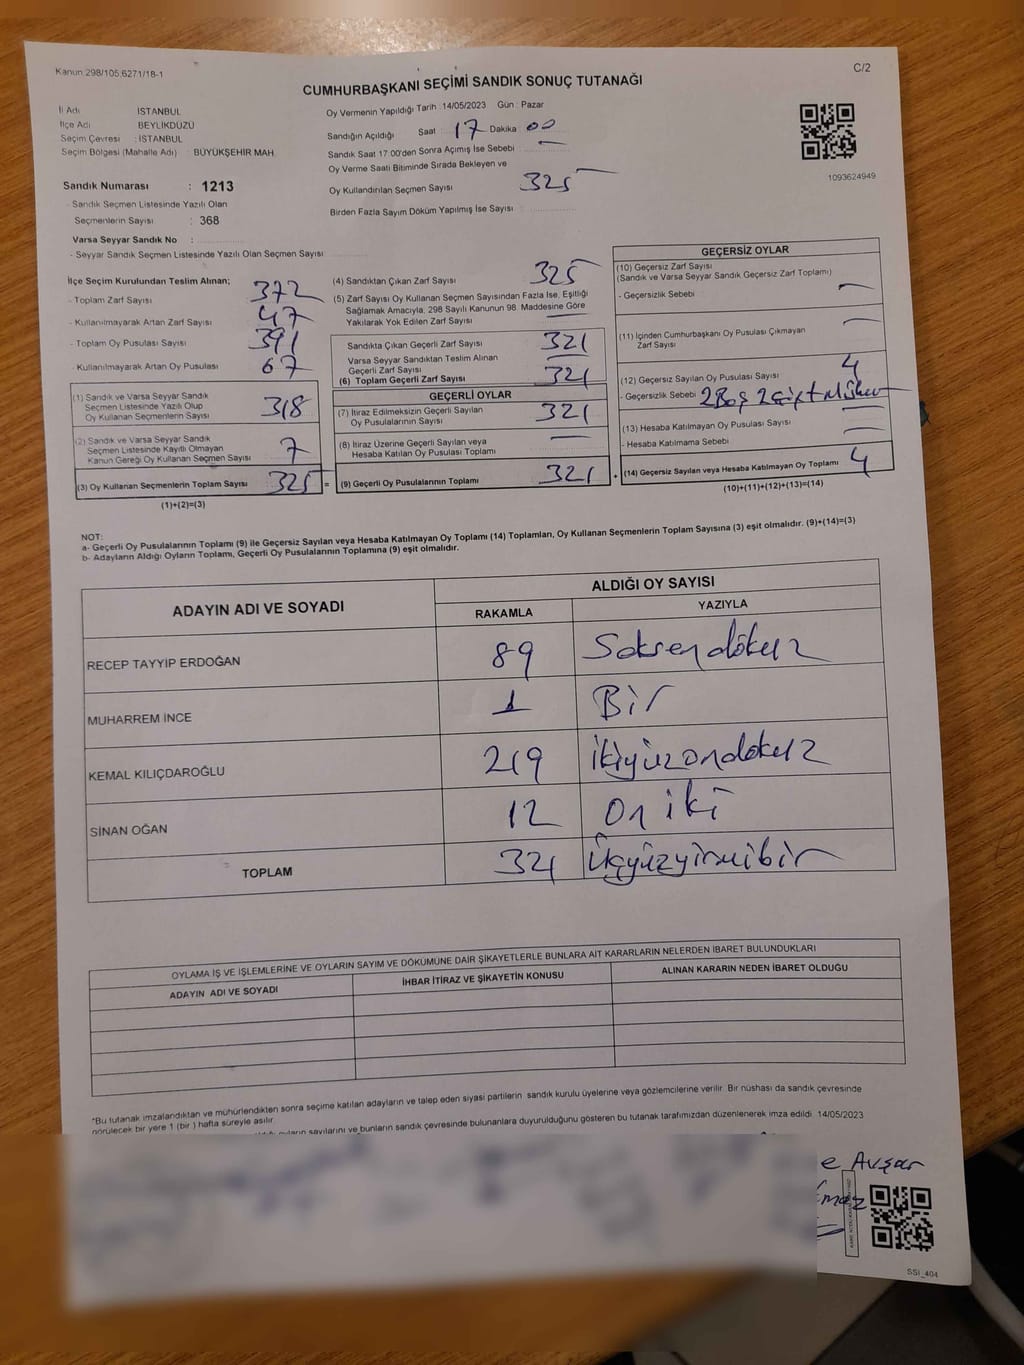 Kanun:298/105;6271/18-1
C/2
CUMHURBAŞKANI SEÇİMİ SANDIK SONUÇ TUTANAĞI
İl Adı İSTANBUL
İlçe Adı BEYLİKDÜZÜ
Seçim Çevresi : İSTANBUL
Seçim Bölgesi (Mahalle Adı) : BÜYÜKŞEHİR MAH.
Sandık Numarası : 1213
- Sandık Seçmen Listesinde Yazılı Olan
Seçmenlerin Sayısı : 368
Varsa Seyyar Sandık No :
- Seyyar Sandık Seçmen Listesinde Yazılı Olan Seçmen Sayısı:
Oy Vermenin Yapıldığı Tarih : 14/05/2023 Gün : Pazar
Sandığın Açıldığı Saat 17 Dakika 00
Sandık Saat 17:00'den Sonra Açımış İse Sebebi
Oy Verme Saati Bitiminde Sırada Bekleyen ve
Oy Kullandırılan Seçmen Sayısı 325
Birden Fazla Sayım Döküm Yapılmış İse Sayısı :
1093624949
İlçe Seçim Kurulundan Teslim Alınan;
- Toplam Zarf Sayısı 372
- Kullanılmayarak Artan Zarf Sayısı 47
- Toplam Oy Pusulası Sayısı 391
- Kullanılmayarak Artan Oy Pusulası 67
(1) Sandık ve Varsa Seyyar Sandık
Seçmen Listesinde Yazılı Olup
Oy Kullanan Seçmenlerin Sayısı 318
(2) Sandık ve Varsa Seyyar Sandık
Seçmen Listesinde Kayıtlı Olmayan
Kanun Gereği Oy Kullanan Seçmen Sayısı 7
(3) Oy Kullanan Seçmenlerin Toplam Sayısı 325 =
(1)+(2)=(3)
(4) Sandıktan Çıkan Zarf Sayısı 325
(5) Zarf Sayısı Oy Kullanan Seçmen Sayısından Fazla İse, Eşitliği
Sağlamak Amacıyla; 298 Sayılı Kanunun 98. Maddesine Göre
Yakılarak Yok Edilen Zarf Sayısı
Sandıkta Çıkan Geçerli Zarf Sayısı 321
Varsa Seyyar Sandıktan Teslim Alınan
Geçerli Zarf Sayısı
(6) Toplam Geçerli Zarf Sayısı 321
GEÇERLİ OYLAR
(7) İtiraz Edilmeksizin Geçerli Sayılan
Oy Pusulalarının Toplamı 321
(8) İtiraz Üzerine Geçerli Sayılan veya
Hesaba Katılan Oy Pusulası Toplamı
(9) Geçerli Oy Pusulalarının Toplamı 321 +
GEÇERSİZ OYLAR
(10) Geçersiz Zarf Sayısı
(Sandık ve Varsa Seyyar Sandık Geçersiz Zarf Toplamı)
- Geçersizlik Sebebi
(11) İçinden Cumhurbaşkanı Oy Pusulası Çıkmayan
Zarf Sayısı
(12) Geçersiz Sayılan Oy Pusulası Sayısı 4
- Geçersizlik Sebebi 2 Boş 2 Çift Mühür
(13) Hesaba Katılmayan Oy Pusulası Sayısı
- Hesaba Katılmama Sebebi
(14) Geçersiz Sayılan veya Hesaba Katılmayan Oy Toplamı 4
(10)+(11)+(12)+(13)=(14)
NOT:
a- Geçerli Oy Pusulalarının Toplamı (9) ile Geçersiz Sayılan veya Hesaba Katılmayan Oy Toplamı (14) Toplamları, Oy Kullanan Seçmenlerin Toplam Sayısına (3) eşit olmalıdır. (9)+(14)=(3)
b- Adayların Aldığı Oyların Toplamı, Geçerli Oy Pusulalarının Toplamına (9) eşit olmalıdır.
ADAYIN ADI VE SOYADI ALDIĞI OY SAYISI
RAKAMLA YAZIYLA
RECEP TAYYİP ERDOĞAN 89 Seksendokuz
MUHARREM İNCE 1 Bir
KEMAL KILIÇDAROĞLU 219 ikiyüzondokuz
SİNAN OĞAN 12 On iki
TOPLAM 321 Üçyüzyirmibir
OYLAMA İŞ VE İŞLEMLERİNE VE OYLARIN SAYIM VE DÖKÜMÜNE DAİR ŞİKAYETLERLE BUNLARA AİT KARARLARIN NELERDEN İBARET BULUNDUKLARI
ADAYIN ADI VE SOYADI İHBAR İTİRAZ VE ŞİKAYETİN KONUSU ALINAN KARARIN NEDEN İBARET OLDUĞU
*Bu tutanak imzalandıktan ve mühürlendikten sonra seçime katılan adayların ve talep eden siyasi partilerin sandık kurulu üyelerine veya gözlemcilerine verilir. Bir nüshası da sandık çevresinde
görülecek bir yere 1 (bir) hafta süreyle asılır.
sayılarını ve bunların sandık çevresinde bulunanlara duyurulduğunu gösteren bu tutanak tarafımızdan düzenlenerek imza edildi. 14/05/2023
e Avşar
maz
SSİ_404